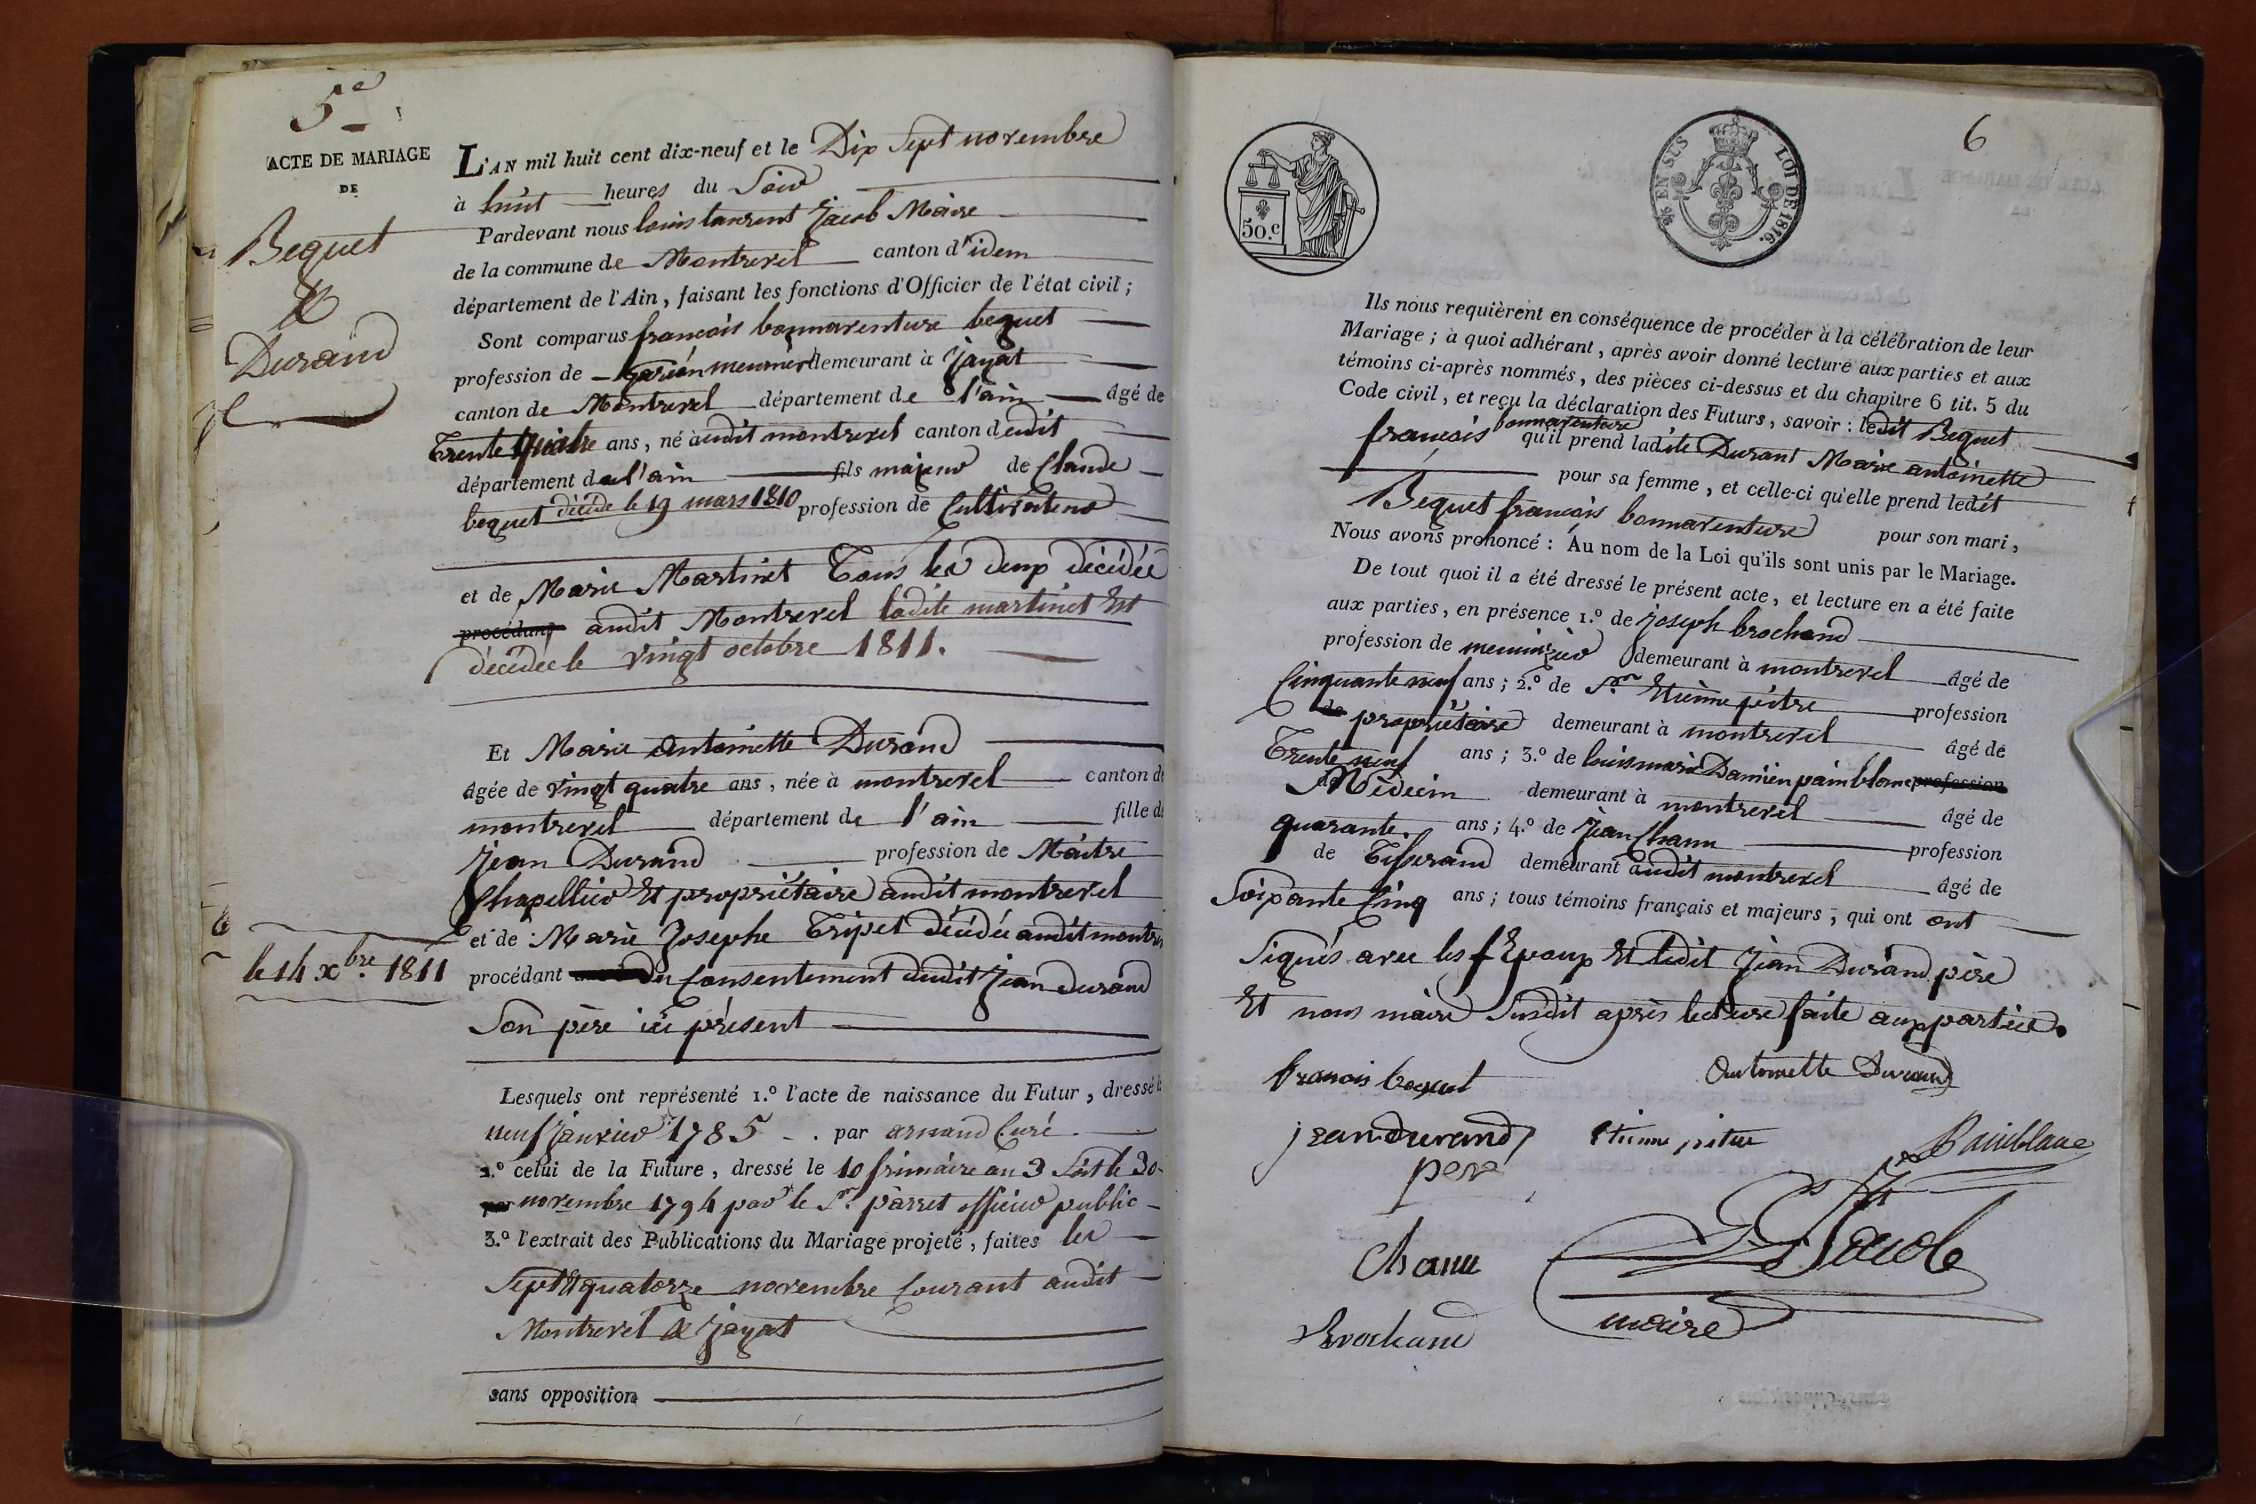 5e
ACTE DE MARIAGE
DE
Bequet
&
Durand
L'AN mil huit cent dix-neuf et le Dix Sept novembre
à huit heures du Soir
Pardevant nous louis laurent Jacob Maire
de la commune de Montrevel canton d'idem
département de l'Ain, faisant les fonctions d'Officier de l'état civil;
Sont comparus françois bonnaventure bequet
profession de garçon meunier demeurant à Jayat
canton de Montrevel département de l'ain âgé de
Trente quatre ans, né audit montrevel canton dudit
département de l'ain fils majeur de Claude
bequet décédé le 19 mars 1810 profession de Cultivateur
et de Marie Martinet Tous les deux décédés
procédant audit Montrevel ladite martinet Est
décédée le vingt octobre 1811.
Et Marie Antoinette Durand
âgée de vingt quatre ans, née à montrevel canton de
montrevel département de l'ain fille de
Jean Durand profession de Maitre
Chapellier Et propriétaire audit montrevel
et de Marie Josephe Tripet décédée audit montrev
le 14 xbre. 1811
procédant du Consentement dudit Jean Durand
Son père ici présent
Lesquels ont représenté 1.º l'acte de naissance du Futur, dressé le
neuf janvier 1785 - . par arnaud Curé
2.º celui de la Future, dressé le 10 frimaire an 3 Soit le 30
par novembre 1794 par le Sr. parret officier public
3.º l'extrait des Publications du Mariage projeté, faites les
Sept Et quatorze novembre Courant audit
Montrevel & Jayat
sans opposition
50.c
EN SUS
LOI DE 1816.
6
Ils nous requièrent en conséquence de procéder à la célébration de leur
Mariage; à quoi adhérant, après avoir donné lecture aux parties et aux
témoins ci-après nommés, des pièces ci-dessus et du chapitre 6 tit. 5 du
Code civil, et reçu la déclaration des Futurs, savoir: ledit Bequet
françois bonnaventure qu'il prend ladite Durant Marie antoinette
pour sa femme, et celle-ci qu'elle prend ledit
Bequet françois bonnaventure pour son mari,
Nous avons prononcé: Au nom de la Loi qu'ils sont unis par le Mariage.
De tout quoi il a été dressé le présent acte, et lecture en a été faite
aux parties, en présence 1.º de Joseph brochand
profession de menuizier demeurant à montrevel âgé de
Cinquante neuf ans; 2.º de Sr. Etienne pitre profession
de propriétaire demeurant à montrevel âgé de
Trente neuf ans; 3.º de louis marie Damien painblanc profession
de Médecin demeurant à montrevel âgé de
quarante. ans; 4.º de Jean Chanu profession
de Tisserand demeurant audit montrevel âgé de
Soixante Cinq ans; tous témoins français et majeurs, qui ont ont
Signés avec les f Epoux Et ledit Jean Durand père
Et nous maire Susdit après lecture faite aux parties.
francois bequet
Antoinette Durand
jean durand
pere
Etienne pitre
Painblanc
Chanu
Jacob
maire
Brochand